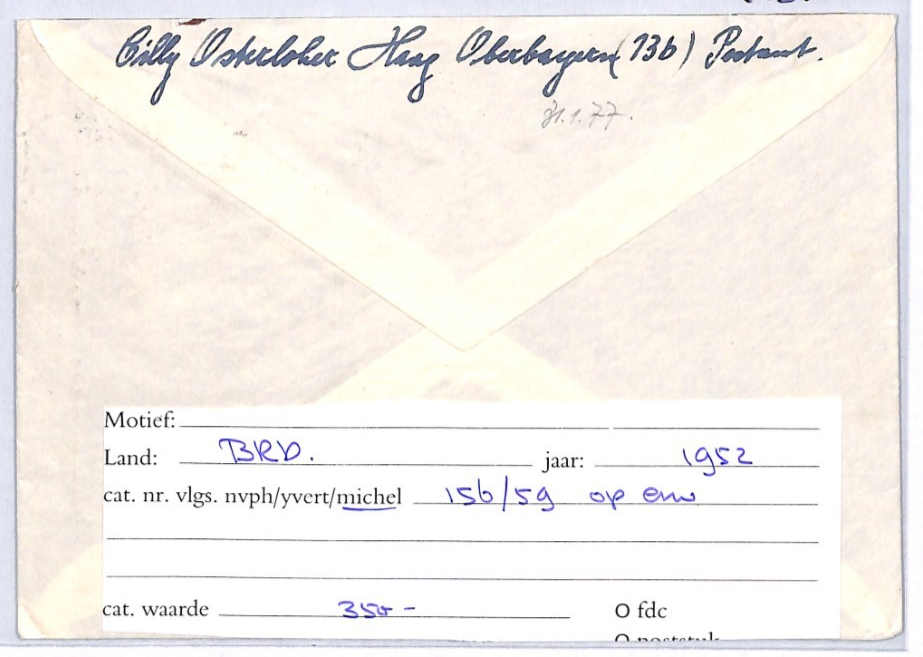 Cilly Osterloher Haag Oberbayern (13b) Postamt.
31.1.77.
Motief:
Land: BRD. jaar: 1952
cat. nr. vlgs. nvph/yvert/michel 156/59 op env
cat. waarde 350 -
O fdc
O poststuk